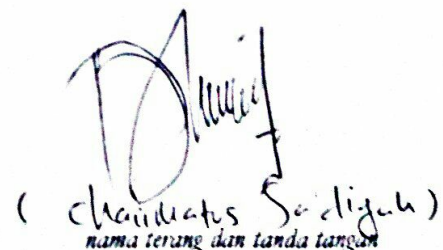 ( Chairiatus Sa'diyah )
nama terang dan tanda tangan